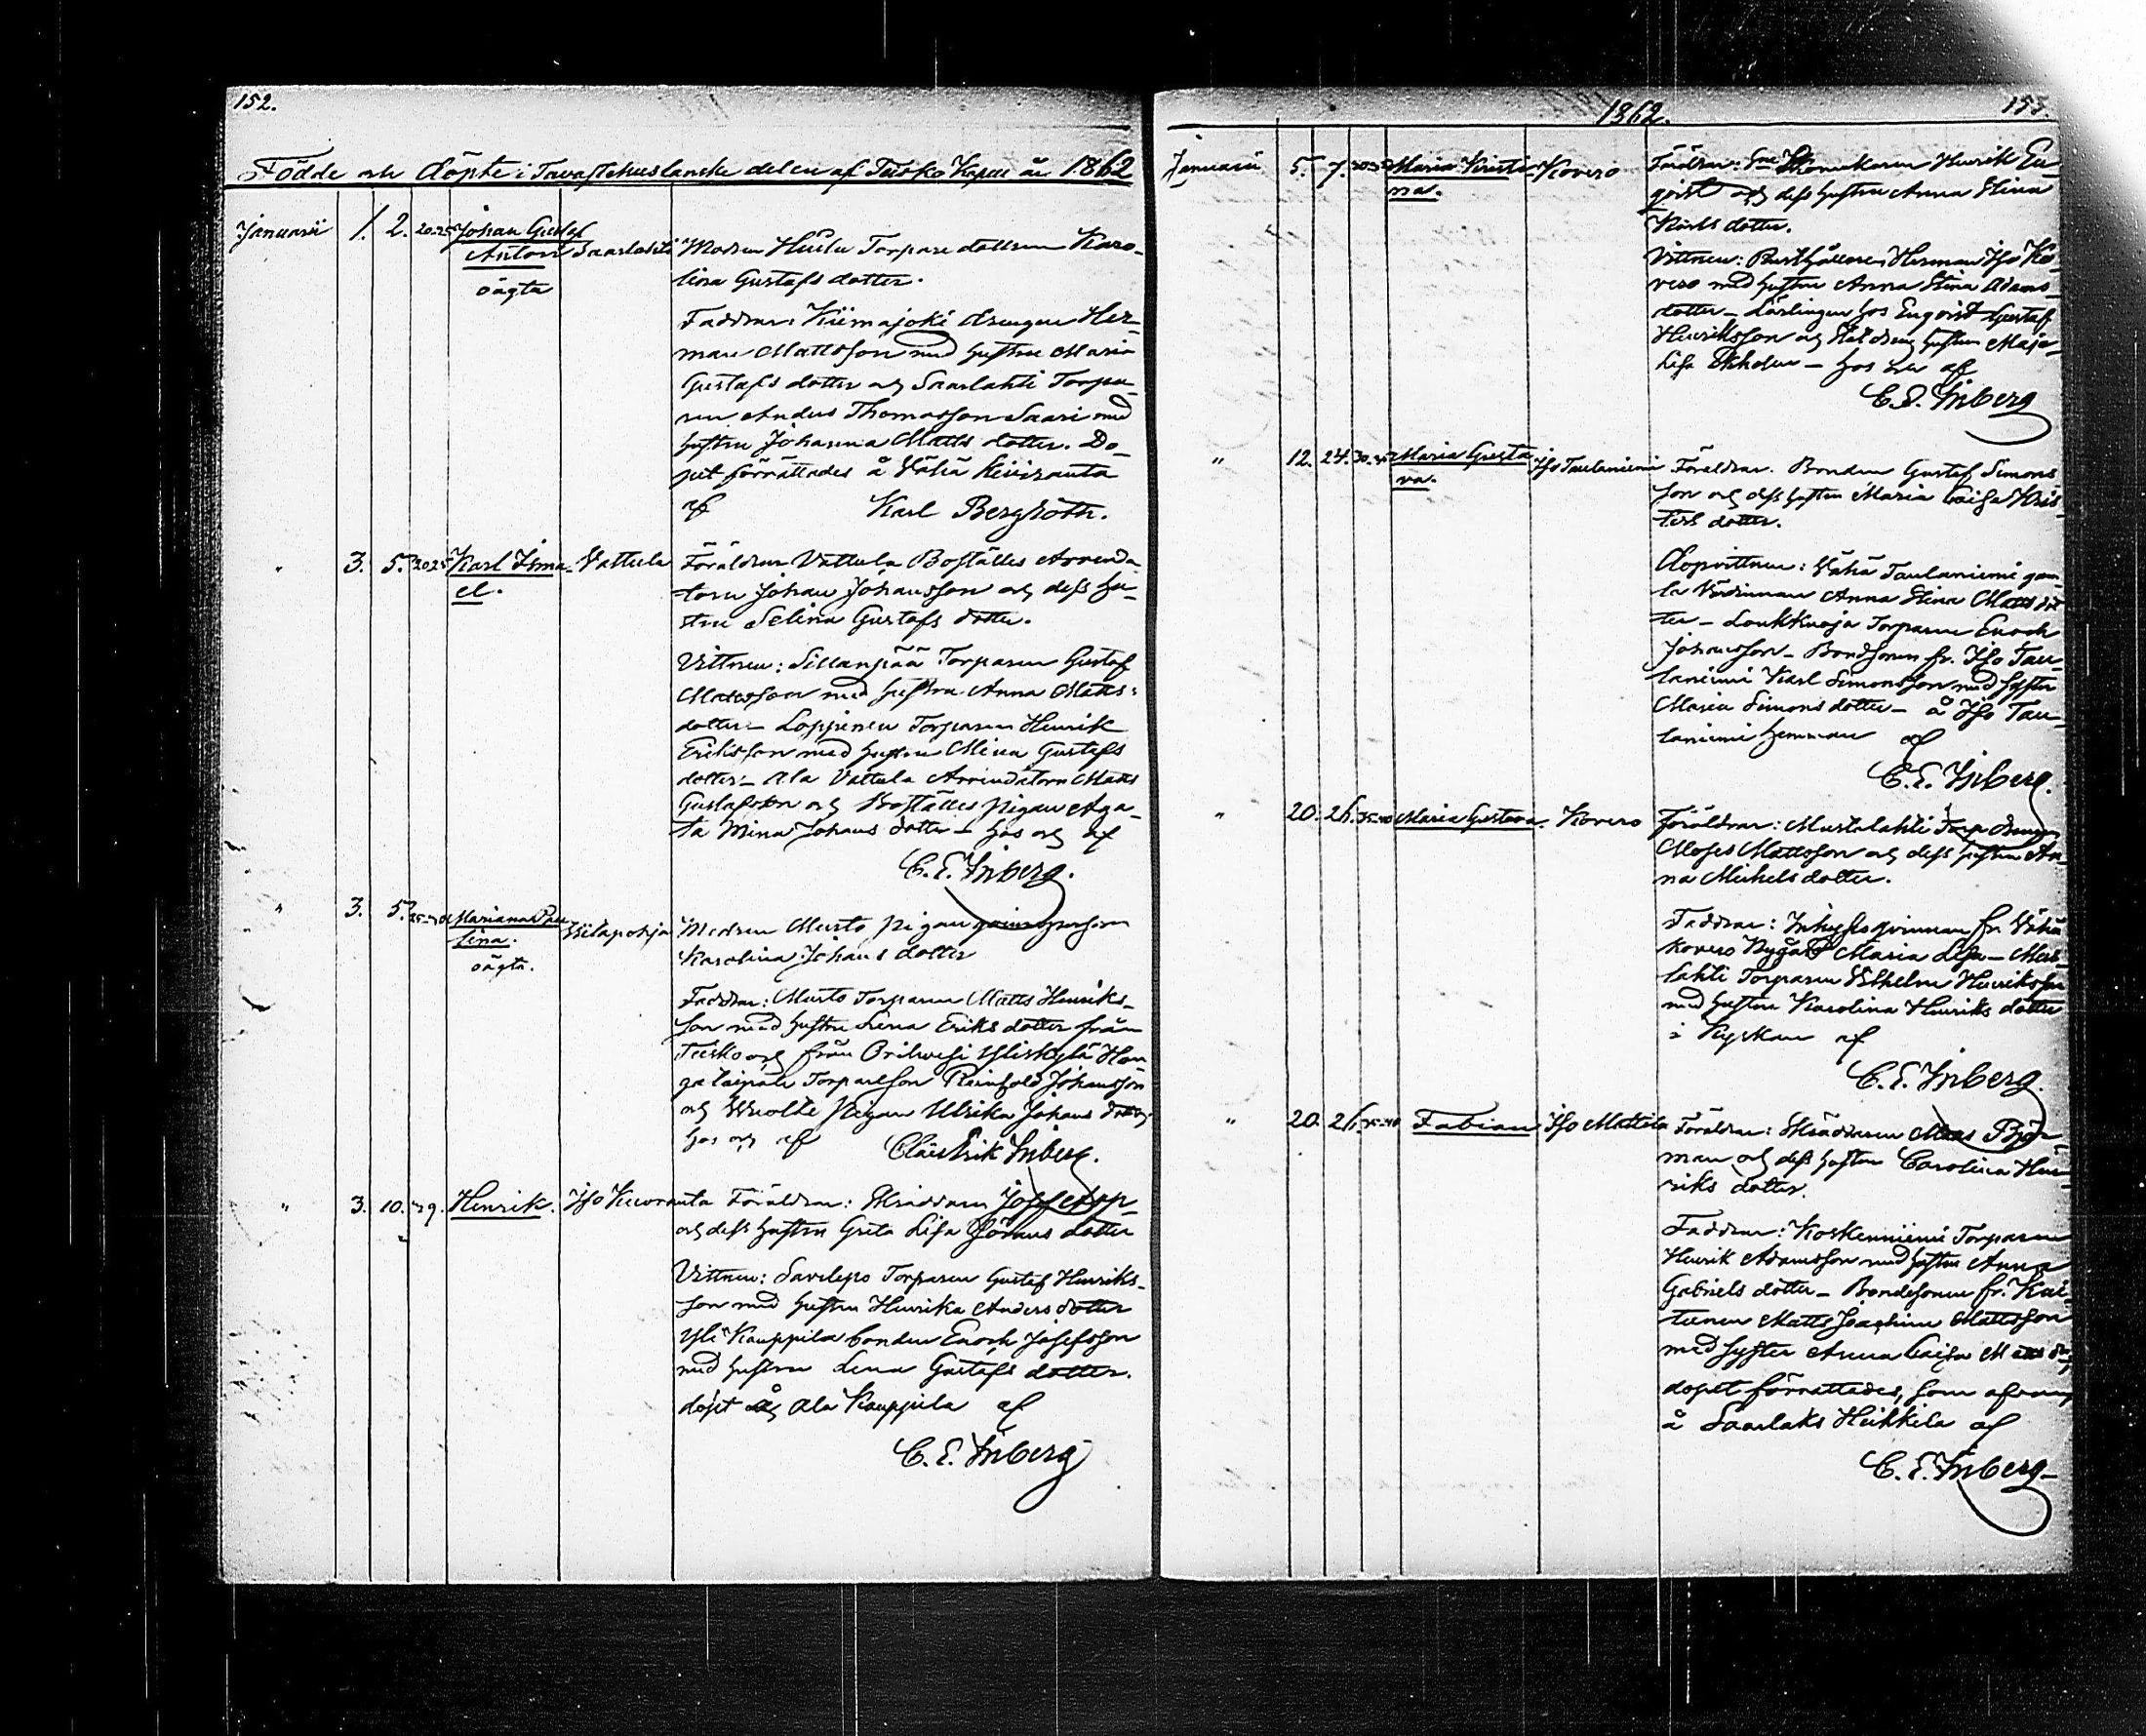 152.
Födde och Döpte i Tavastehuslänske delen af Teisko Kapell år 1862
Januarii 1. 2. 20-25 Johan Gustaf
Anton Saarlahti
oägta
Modren Torpare dottren Karo-
lina Gustafs dotter.
Faddrar: Kiimajoki drengen Her-
man Mattsson med hustru Maria
Gustafs dotter och Saarlahti Torpa-
ren Anders Thomasson Saari med
hustru Johanna Matts dotter. Do-
pet förrättades å Vähä Keiviranta
af Karl Bergroth.
" 3. 5. 20-25 Karl Isma- Vattula
el.
Föräldrar Vattula Boställes Arrenda-
torn Johan Johansson och dess hu-
stru Selina Gustafs dotter.
Vittnen: Sillanpää Torparen Gustaf
Mattsson med hustru Anna Matts-
dotter - Loppinen Torparen Henrik
Eriksson med hustru Mina Gustafs
dotter - Ala Vattula Arrendatorn Matts
Gustafsson och Boställes pigan Aga-
ta Mina Johans dotter - hos och af
C. E. Inberg.
" 3. 5. 25-30 Mariana Pau-
lina. Wiilapohja
oägta.
Modren Musto pigan
Karolina Johans dotter
Faddrar: Musto Torparen Matts Henriks-
son med hustru Lena Eriks dotter från
Teisko och från Orihvesi Yliskylä Han-
gataipale Torparesson Reinhold Johansson
och pigan Ulrika Johans dotter
hos och af Claes Erik Inberg.
" 3. 10. 39. Henrik. Iso Kuoranta
Föräldrar: Skräddaren Josef
och dess hustru Greta Lisa Jörans dotter
Vittnen: Savilepo Torparen Gustaf Henriks-
son med hustru Henrika Anders dotter
Yli Kauppila bonden Enoch Josefsson
med hustru Lena Gustafs dotter.
döpt å Ala Kauppila af
C. E. Inberg
1862. 153.
Januarii 5. 7. 30-35 Maria Kristi- Kovero
na.
Föräldrar: Skomakaren Henrik En-
qvist och dess hustru Anna Stina
dotter.
Vittnen: Rusthållaren Herman Iso Ko-
vero med hustru Anna Stina Adams-
dotter - Lärlingen hos Enqvist Gustaf
Henriksson och hustrun Maja
Lisa - hos och af
C. E. Inberg
" 12. 24. 30-35 Maria Gusta- Iso Taulaniemi
va.
Föräldrar. Bonden Gustaf Simons-
son och dess hustru Maria Caisa Kris-
ters dotter.
Dopvittnen: Vähä Taulaniemi gam-
la Värdinnan Anna Stina Matts dot-
ter - Loukkuoja Torparen Enoch
Johansson - Bondsonen fr. Iso Tau-
laniemi Karl Simonsson med syster
Maria Simons dotter - å Iso Tau-
laniemi hemman af
C. E. Inberg.
" 20. 26. 35-40 Maria Gustava. Kovero
Föräldrar: Mustalahti Torp drengen
Moses Mattsson och dess hustru An-
na Michels dotter.
Faddrar: Inhyses qvinnan fr. Vähä
Kovero Nygård Maria Lisa - Mus-
lahti Torparen Vilhelm Henriksson
med hustru Karolina Henriks dotter
i Kyrkan af
C. E. Inberg.
" 20. 26. 35-40 Fabian Iso Mattila
Föräldrar: Skräddaren Matts Björ-
man och dess hustru Carolina Hen-
riks dotter.
Faddrar: Koskenniemi Torparen
Henrik Adamsson med hustru Anna
Gabriels dotter - Bondesonen fr. Kai-
tunen Matts Joachim Mattsson
med syster Anna Caisa Matts dotter
dopet förrättades, som
å Saarlaks Heikkilä af
C. E. Inberg